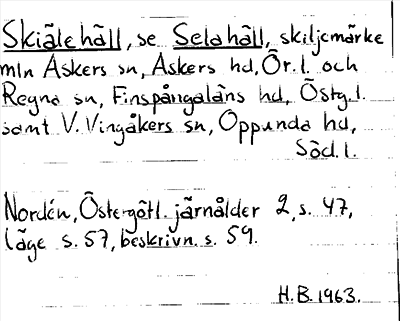 Skiälehäll, se Selahäll, skiljemärke
mln Askers sn, Askers hd, Ör. l. och
Regna sn, Finspångaläns hd, Östg. l.
samt V. Vingåkers sn, Oppunda hd,
Söd. l.
Nordén, Östergötl. järnålder 2, s. 47,
läge s. 57, beskrivn. s. 59.
H. B. 1963.